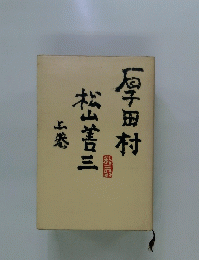 厚田村
松山善三
上巻